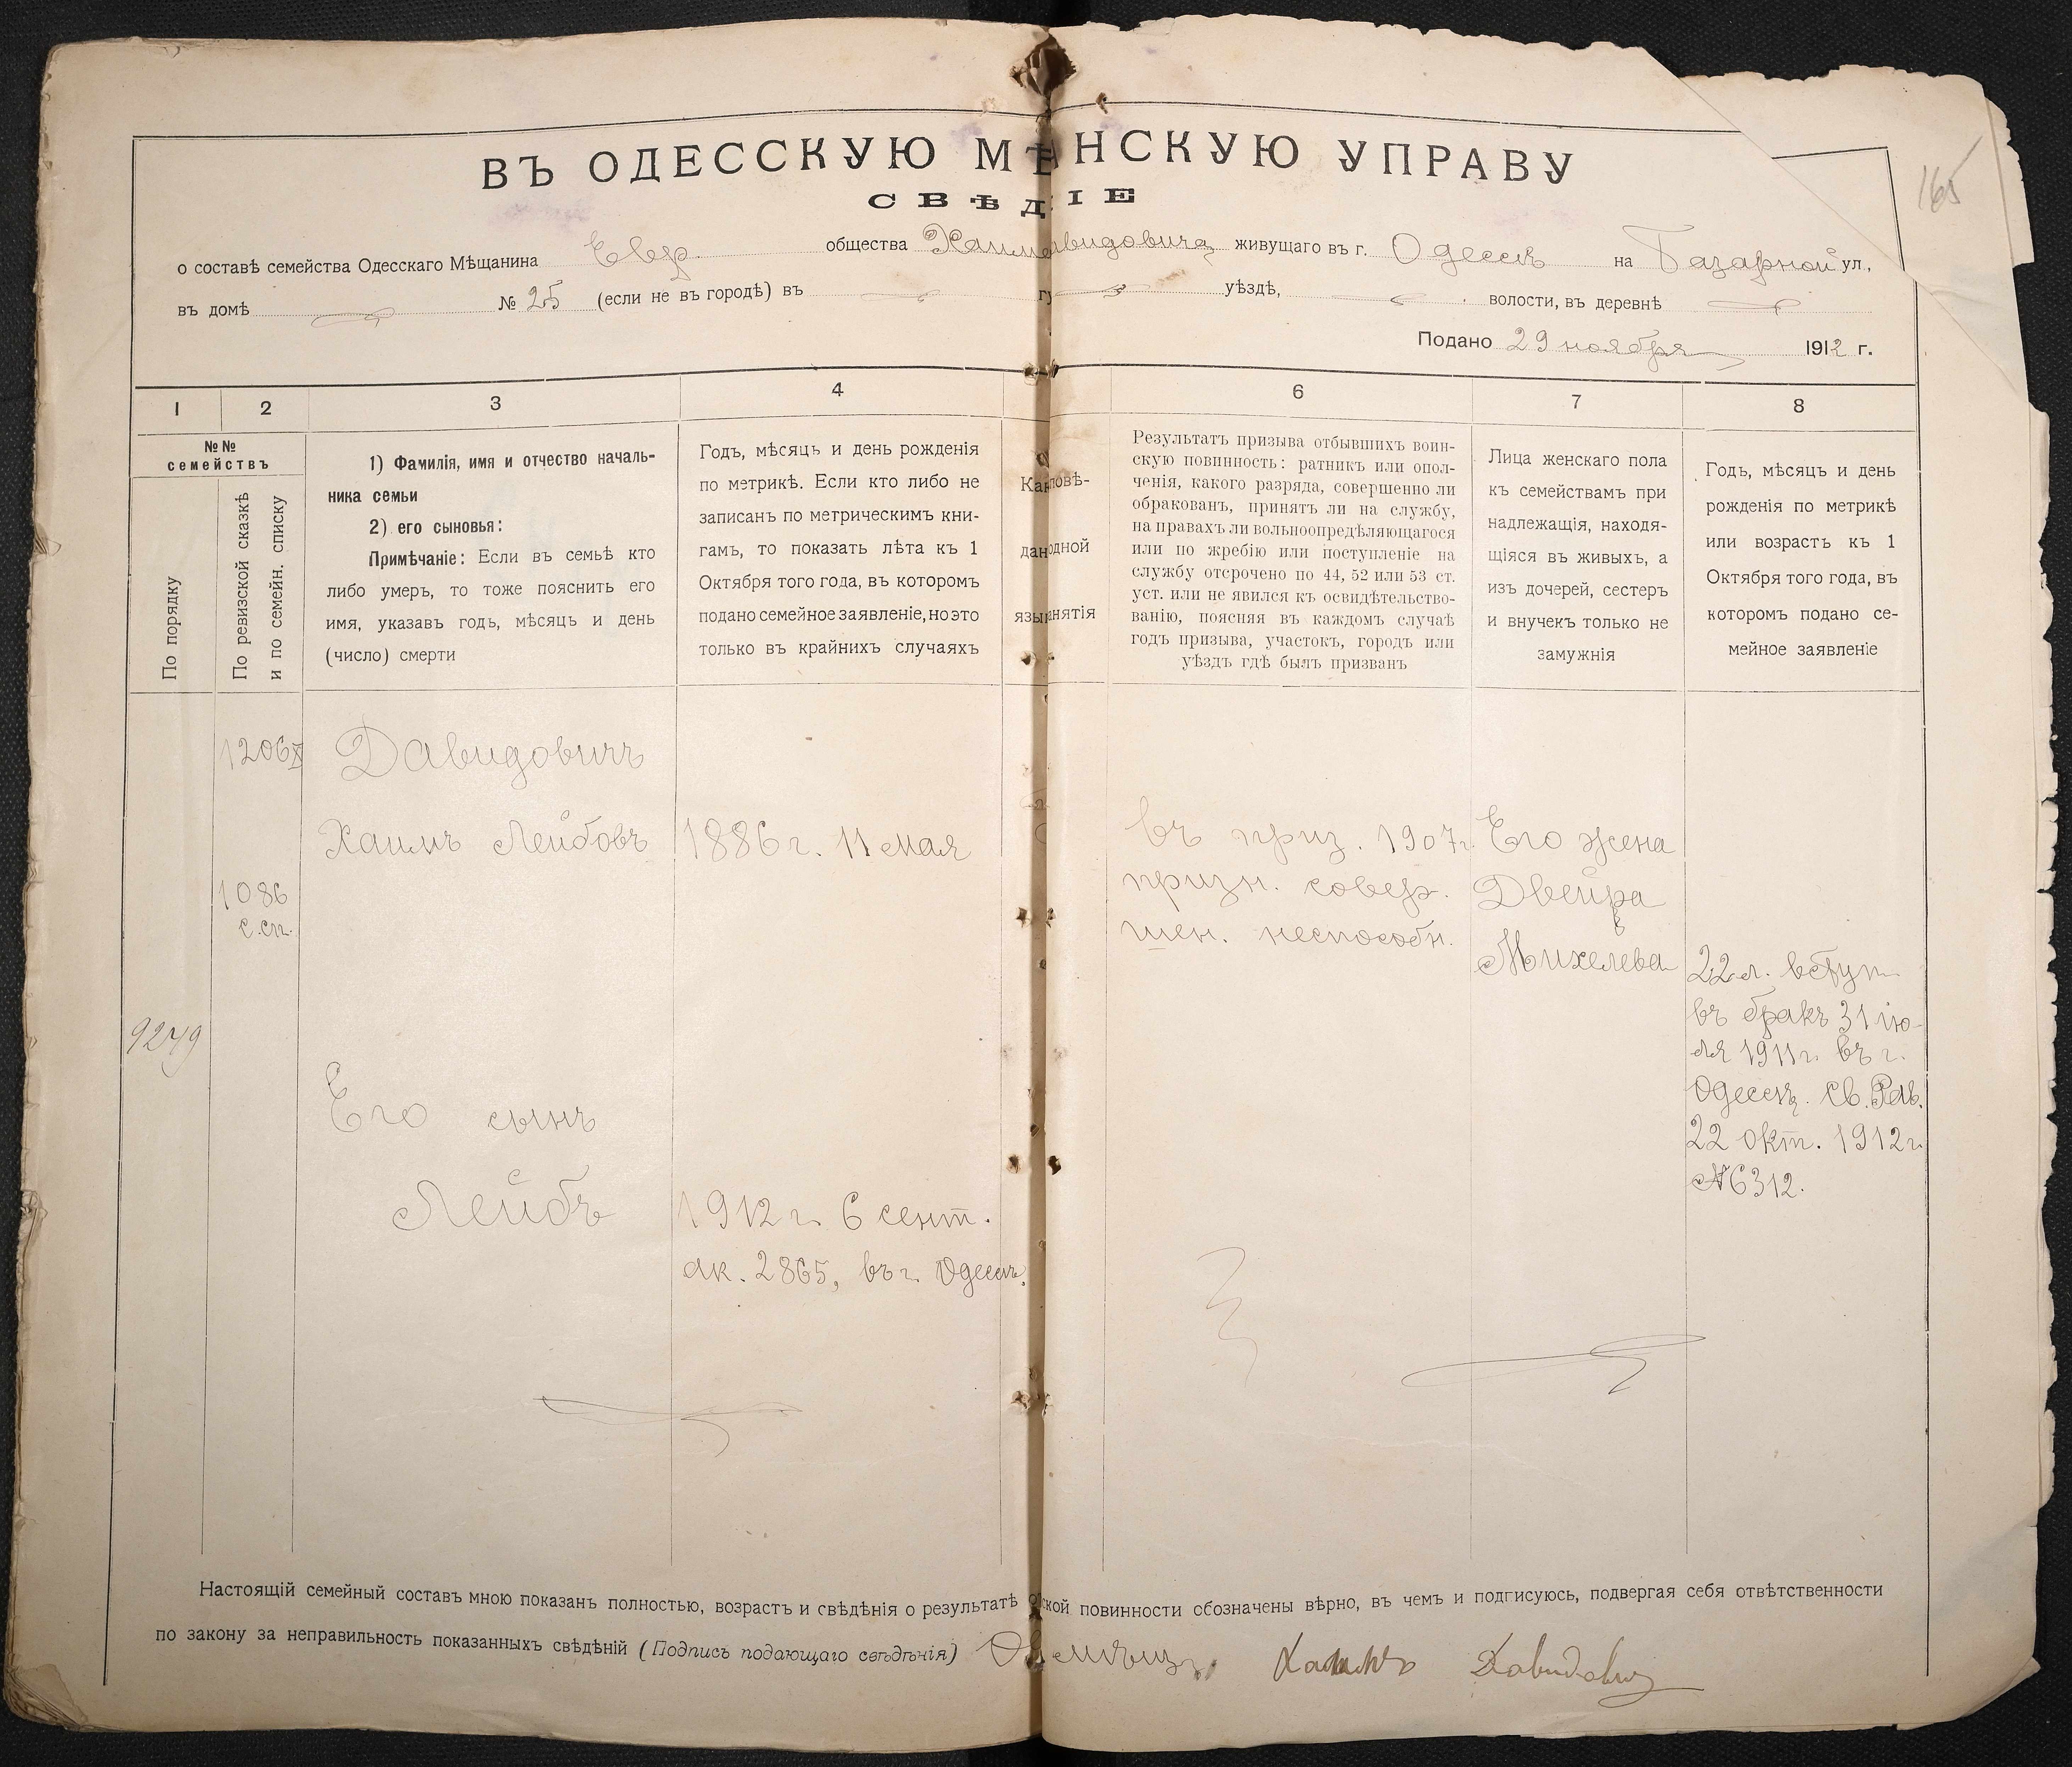 ВЪ ОДЕССКУЮ МѢ НСКУЮ УПРАВУ
СВѢД ІЕ
165
о составѣ семейства Одесскаго Мѣщанина Евр. общества Хаима авидовича живущаго въ г. Одессѣ на Базарной ул.,
въ домѣ № 25 (если не въ городѣ) въ гу уѣздѣ, волости, въ деревнѣ
Подано 29 ноября 1912 г.
1 2 3 4 6 7 8
№№
семействъ
По порядку
По ревизской сказкѣ
и по семейн. списку
1) Фамилія, имя и отчество началь-
ника семьи
2) его сыновья:
Примѣчаніе: Если въ семьѣ кто
либо умеръ, то тоже пояснить его
имя, указавъ годъ, мѣсяцъ и день
(число) смерти
Годъ, мѣсяцъ и день рожденія
по метрикѣ. Если кто либо не
записанъ по метрическимъ кни-
гамъ, то показать лѣта къ 1
Октября того года, въ которомъ
подано семейное заявленіе, но это
только въ крайнихъ случаяхъ
Ка повѣ-
дан одной
язы анятія
Результатъ призыва отбывшихъ воин-
скую повинность: ратникъ или опол-
ченія, какого разряда, совершенно ли
обракованъ, принятъ ли на службу,
на правахъ ли вольноопредѣляющагося
или по жребію или поступленіе на
службу отсрочено по 44, 52 или 53 ст.
уст. или не явился къ освидѣтельство-
ванію, поясняя въ каждомъ случаѣ
годъ призыва, участокъ, городъ или
уѣздъ гдѣ былъ призванъ
Лица женскаго пола
къ семействамъ при
надлежащія, находя-
щіяся въ живыхъ, а
изъ дочерей, сестеръ
и внучекъ только не
замужнія
Годъ, мѣсяцъ и день
рожденія по метрикѣ
или возрастъ къ 1
Октября того года, въ
которомъ подано се-
мейное заявленіе
9249
1206
1086
с.сп.
Давидовичъ
Хаимъ Лейбовъ
1886 г. 11 мая
Его сынъ
Лейбъ
1912 г. 6 сент.
ак. 2865, въ г. Одессѣ.
въ приз. 1907 г.
призн. совер.
шен. неспособн.
Его жена
Двейра
Михелева
22 л. вступ.
въ бракъ 31 ію-
ля 1911 г. въ г.
Одессѣ. Св. Рав.
22 окт. 1912 г.
№6312.
Настоящій семейный составъ мною показанъ полностью, возрастъ и свѣдѣнія о результатѣ ской повинности обозначены вѣрно, въ чемъ и подписуюсь, подвергая себя отвѣтственности
по закону за неправильность показанныхъ свѣдѣній (Подпись подающаго свѣдѣнія) Хаимъ Давидович